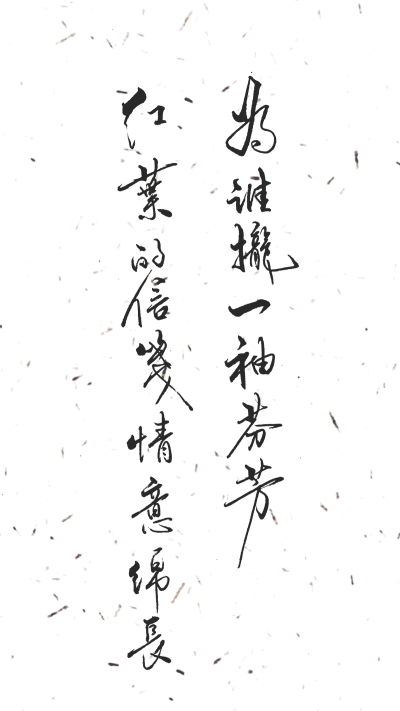 為誰攏一袖芬芳
紅葉的信箋情意綿長